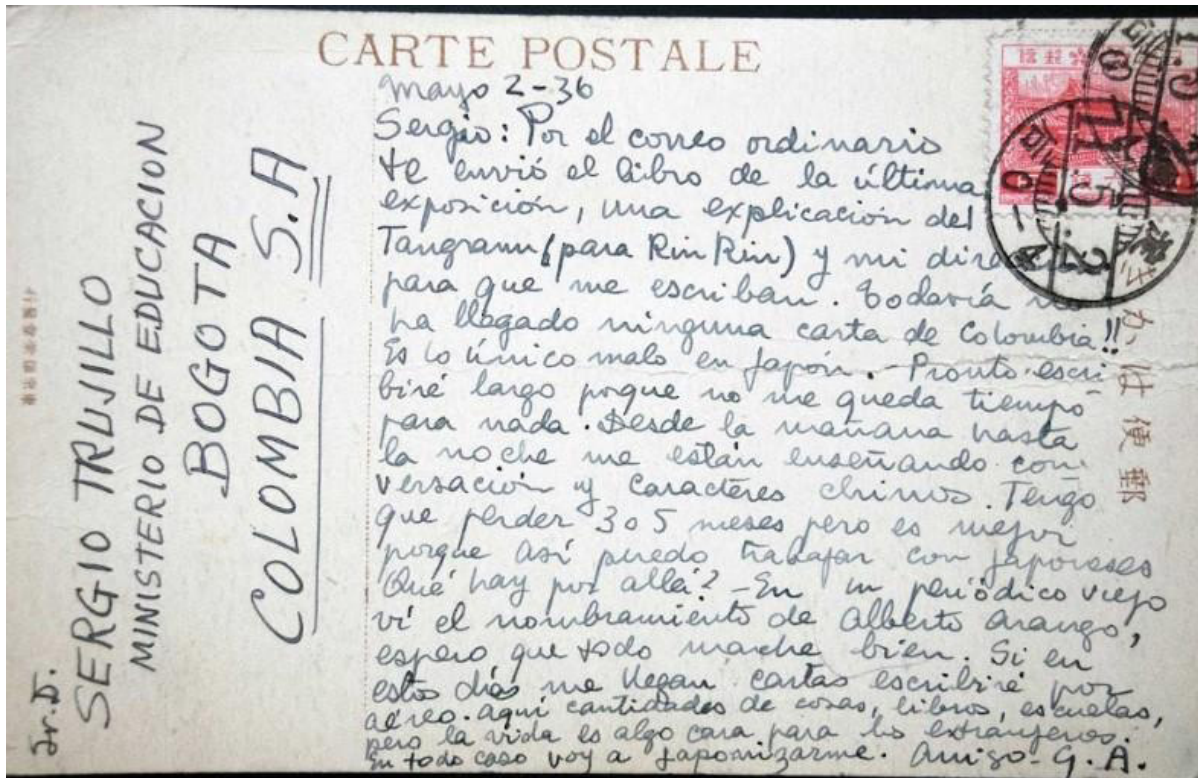 CARTE POSTALE
Mayo 2-36
Sergio: Por el correo ordinario
te envió el libro de la última
exposición, una explicación del
Tangramm (para Rin Rin) y mi
para que me escriban. Todavía
ha llegado ninguna carta de Colombia!!
Es lo único malo en Japón. - Pronto escri
biré largo porque no me queda tiempo
para nada. Desde la mañana hasta
la noche me están enseñando con
versación y caractéres chinos. Tengo
que perder 3 o 5 meses pero es mejor
porque así puedo trabajar con japoneses
Qué hay por allá? - En un periódico viejo
ví el nombramiento de Alberto Arango,
espero que todo marche bien. Si en
estos días me llegan cartas escribiré por
aéreo. Aquí cantidades de cosas, libros, escuelas,
pero la vida es algo cara para los extranjeros.
En todo caso voy a japonizarme. Amigo - G. A.
Sr. D.
SERGIO TRUJILLO
MINISTERIO DE EDUCACION
BOGOTA
COLOMBIA S.A
郵便は